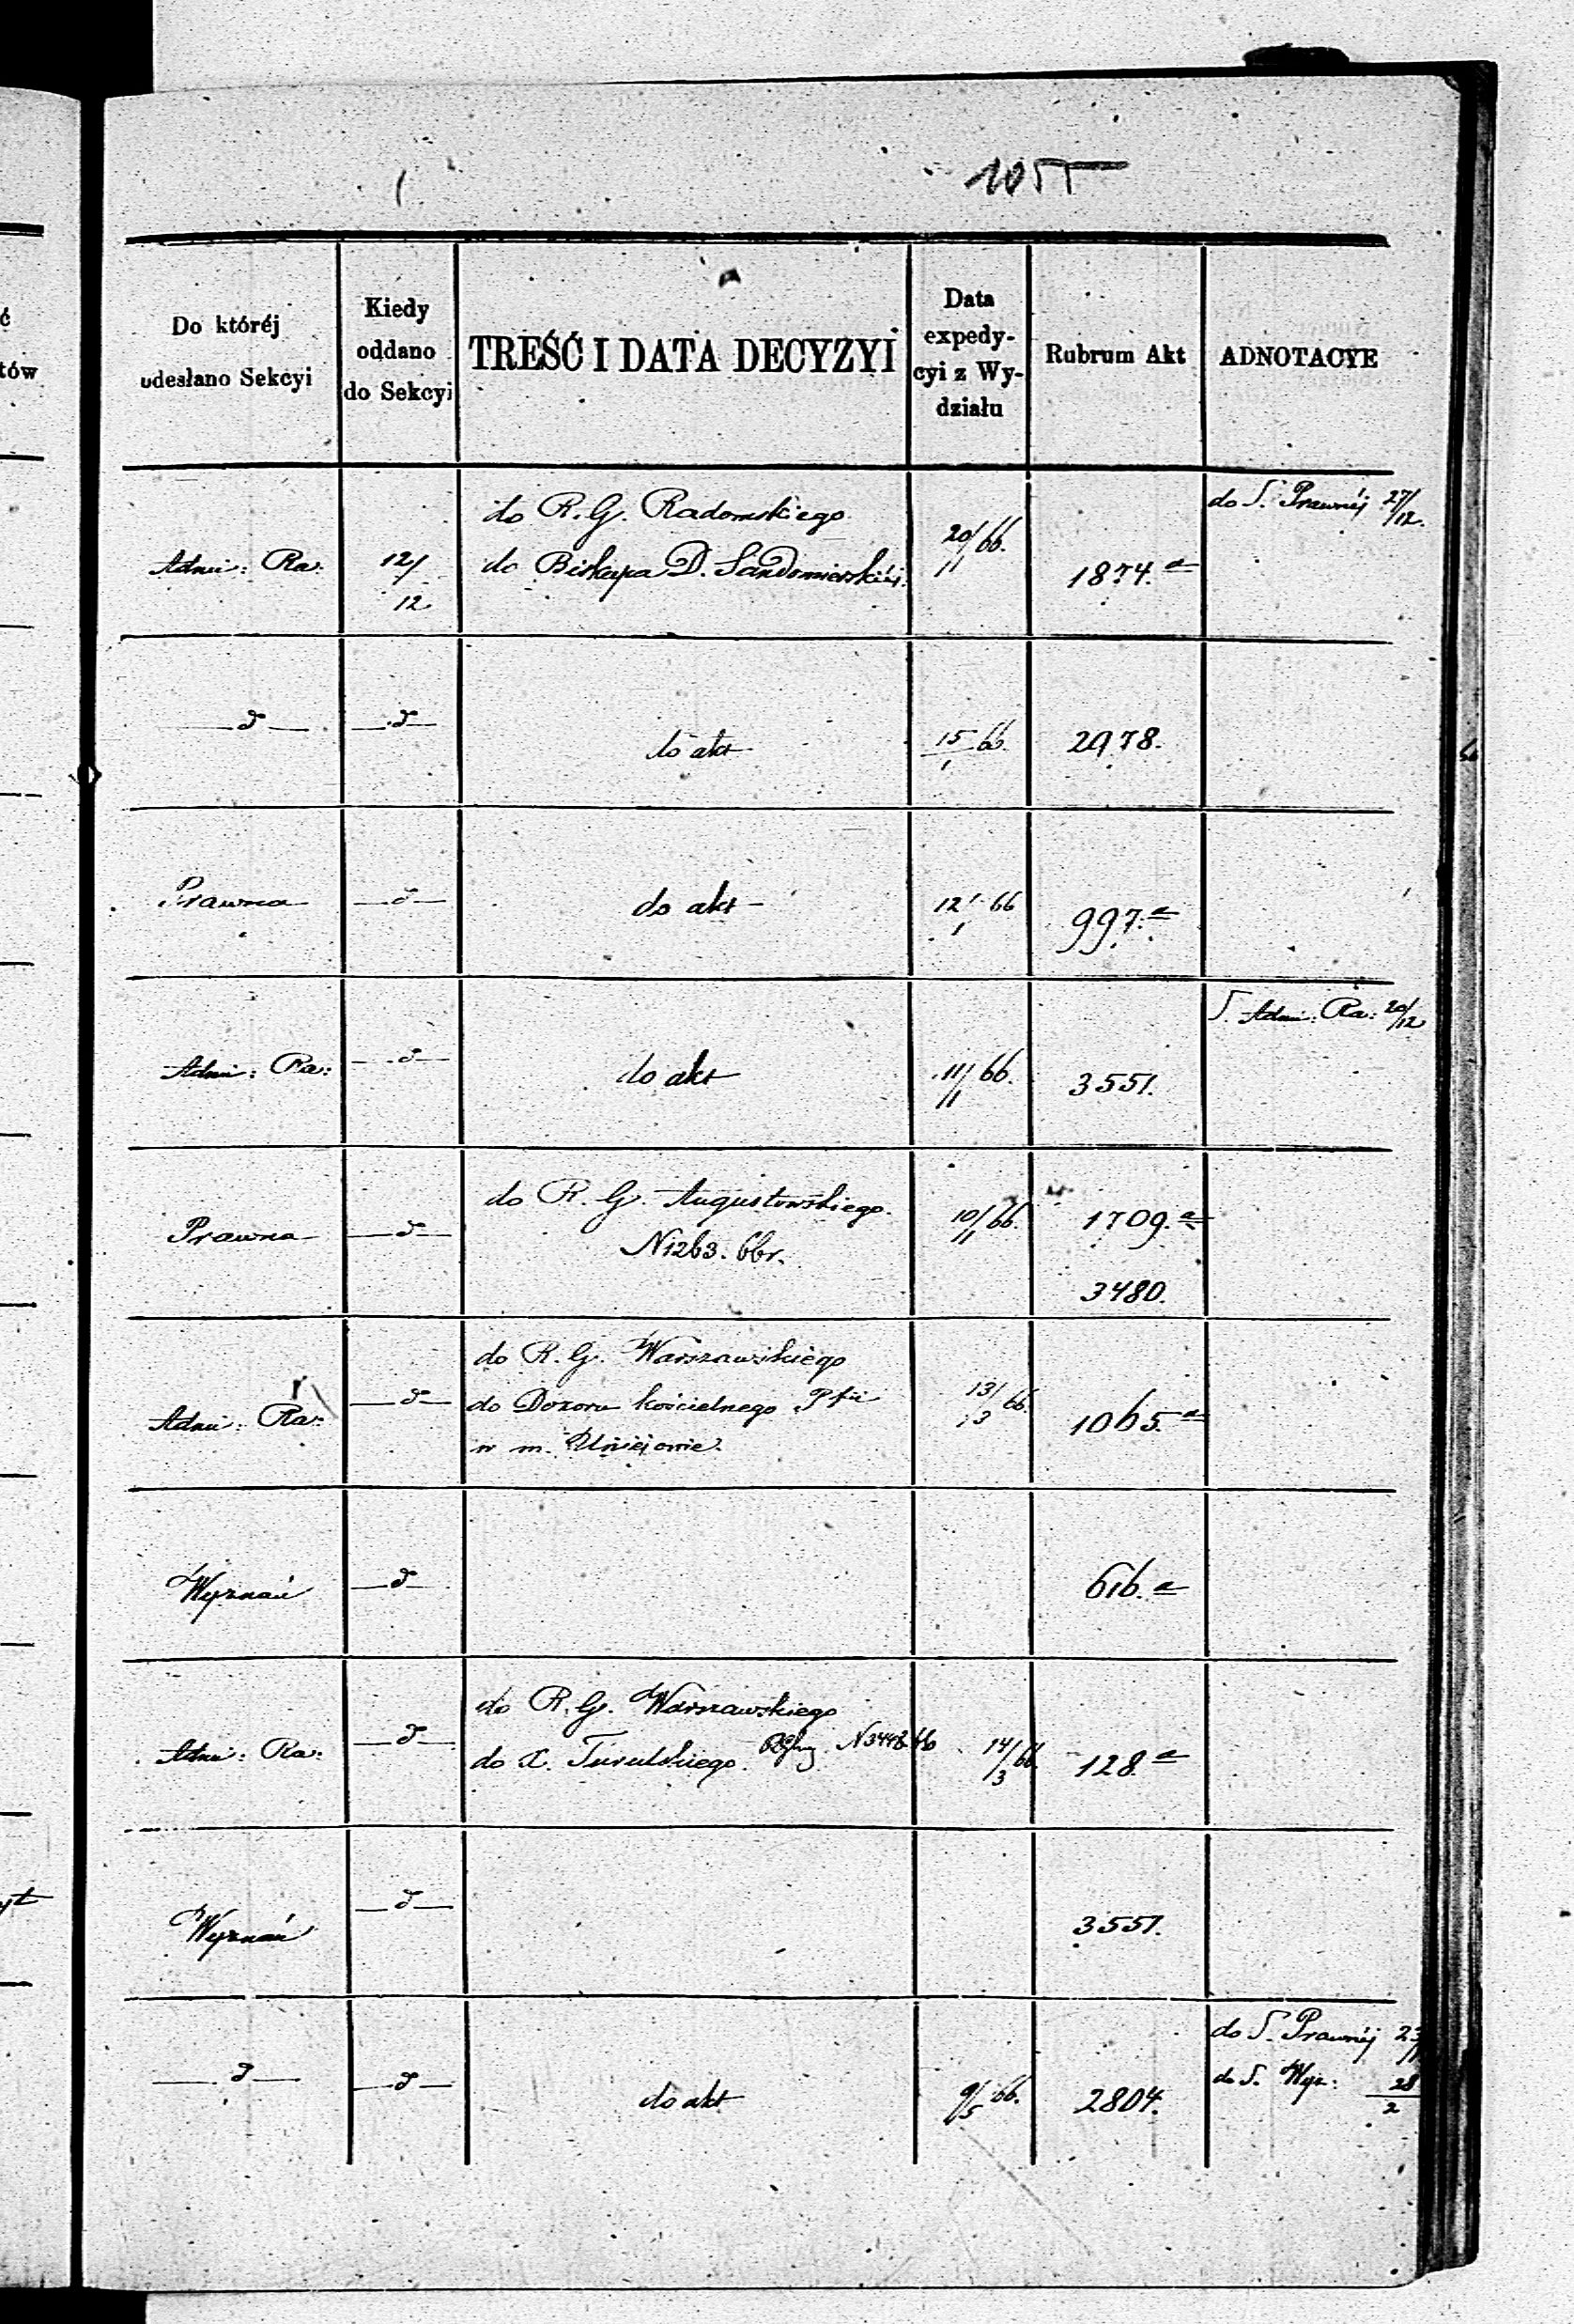 1055
Do któréj
odesłano Sekcyi
Kiedy
oddano
do Sekcyi
TREŚĆ I DATA DECYZYI
Data
expedy-
cyi z Wy-
działu
Rubrum Akt
ADNOTACYE
Admi: Ra:
12/12
do R. G. Radomskiego
do Biskupa D. Sandomierskiéj
20/1 66.
1874.a
do S. Prawnéj 27/12.
—d—
—d—
do akt
15/1 66.
2978.
Prawna
—d—
do akt
12/1 66
997.a
Admi: Ra:
—d—
do akt
11/1 66.
3551.
S. Admi: Ra: 20/12
Prawna
—d—
do R. G. Augustowskiego.
N 1263. 66 r.
10/1 66.
1709.a
3480.
Admi: Ra:
—d—
do R. G. Warszawskiego
do Dozoru kościelnego Pfii
w m. Uniejowie.
13/3 66.
1065.a
Wyznań
—d—
616.a
Admi: Ra:
—d—
do R. G. Warszawskiego
do X. Turulskiego. N 3448 66
14/3 66.
128.a
Wyznań
—d—
3551.
—d—
—d—
do akt
9/5 66.
2804.
do S. Prawnéj 23
do S. Wyz: 28/2